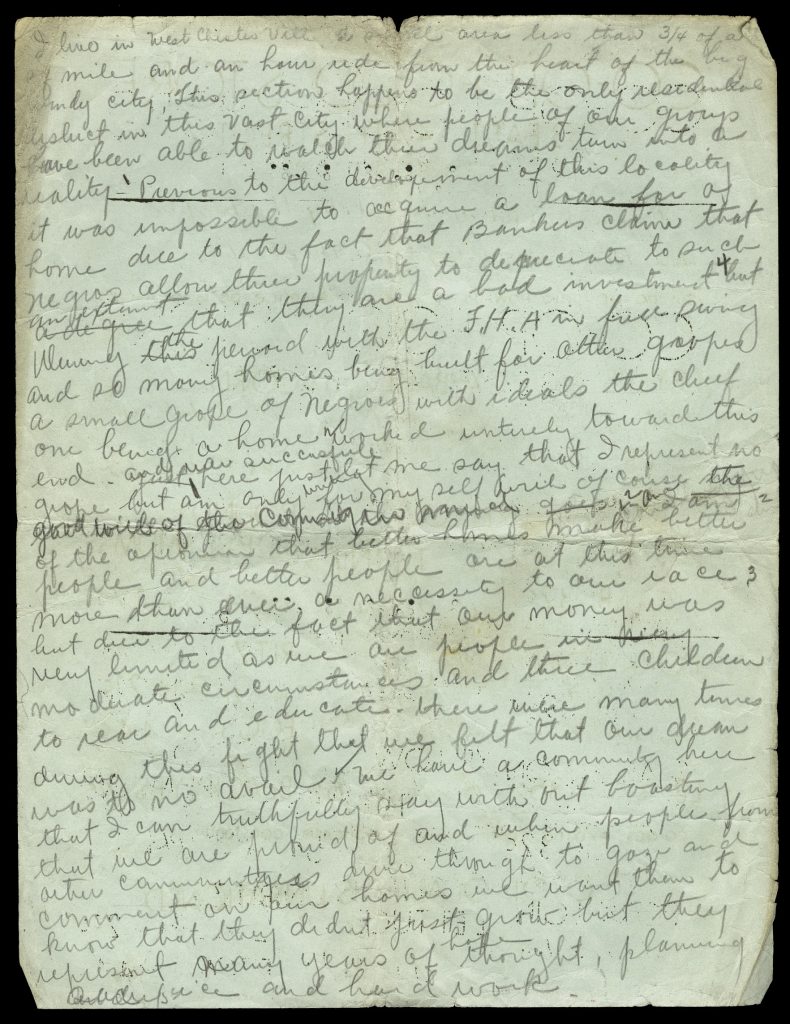 I live in West Chester Vill a small area less than 3/4 of a
of mile and an hour ride from the heart of the big
windy city, This section happens to be the only residential
district in this vast city where people of our group
have been able to watch their dreams turn into a
reality - Previous to the developement of this locality
it was impossible to acquire a loan for a
home due to the fact that Bankers claim that
negros allow there property to depreciate to such
an extent
a degree that they are a bad investment 4 but
During this the period with the F.H.A in full swing
and so many homes being built for other gropes
a small grope of Negros with ideals the chief
one being a home worked untirely toward this
end. and was successful
Just here let me say that I represent no
grope but am only writing for my self and of course the
good will of the Community
of the opionion that better homes make better 2
people and better people are at this time
more than ever a neccessity to our race 3
but due to the fact that our money was
very limited as we are people in very
moderate circumstances and three children
to rear and educate. there were many times
during this fight that we felt that our dream
was to no avail. We have a community here
that I can truthfully say with out boasting
that we are proud of and when people from
other communties drive through to gaze and
comment on our homes we want them to
know that they didn't just grow but they
here
represent many years of thought, planning
and hard work.